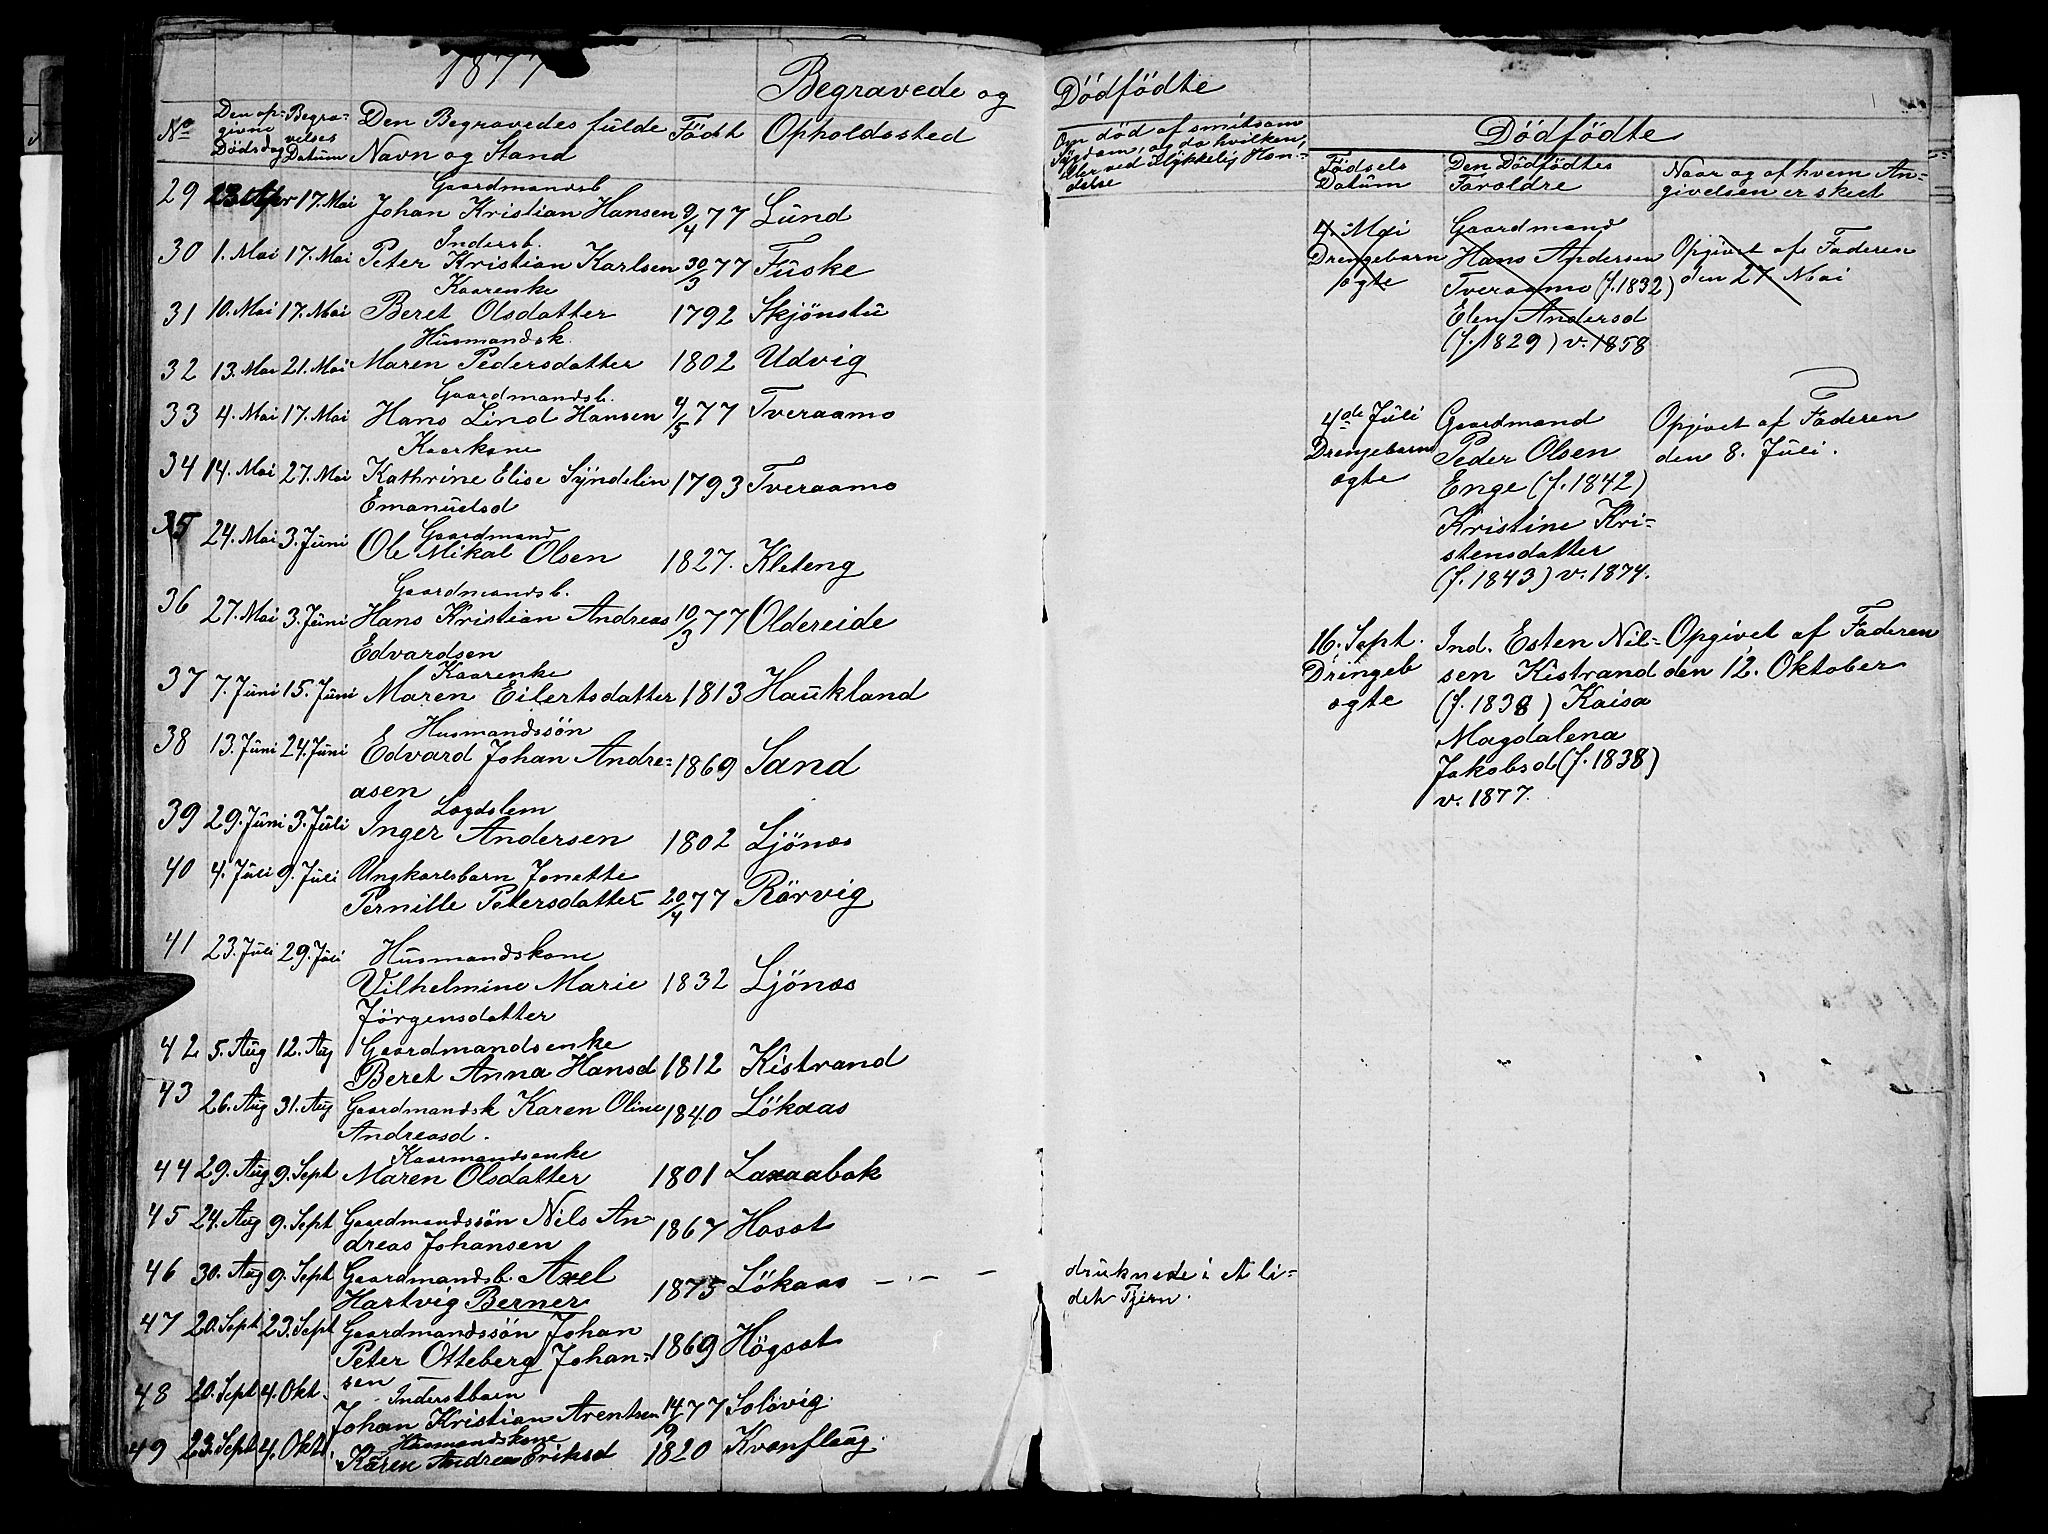 1877
Begravede og
No
Den op-
givne
Dødsdag
Begra-
velses
Datum
Den Begravedes fulde
Navn og Stand
Födt
Opholdssted
29 23 Apr 17. Mai Gaardmandsb.
Johan Kristian Hansen 9/4 77 Lund
30 1. Mai 17. Mai Indersb.
Peter Kristian Karlsen 30/3 77 Fuske
31 10. Mai 17. Mai Kaarenke
Beret Olsdatter 1792 Skjönstu
32 13. Mai 21. Mai Husmandsk.
Maren Pedersdatter 1802 Udvig
33 4. Mai 17. Mai Gaardmandsb.
Hans Lind Hansen 4/5 77 Tveraamo
34 14. Mai 27. Mai Kaarkone
Kathrine Elise Syndelin 1793 Tveraamo
Emanuelsd
35 24. Mai 3. Juni Gaardmand
Ole Mikal Olsen 1827. Kleteng
36 27. Mai 3. Juni Gaardmandsb.
Hans Kristian Andreas 10/3 77 Oldereide
Edvardsen
37 7. Juni 15. Juni Kaarenke
Maren Eilertsdatter 1813 Haukland
38 13. Juni 24. Juni Husmandssön
Edvard Johan Andre= 1869 Sand
asen
39 29. Juni 3. Juli Lægdslem
Inger Andersen 1802 Ljönæs
40 4. Juli 9. Juli Ungkarlsbarn Jonette
Pernille Petersdatter 20/4 77 Rörvig
41 23. Juli 29. Juli Husmandskone
Vilhelmine Marie 1832 Ljönæs
Jörgensdatter
42 5. Aug 12. Aug Gaardmandsenke
Beret Anna Hansd 1812 Kistrand
43 26. Aug 31. Aug Gaardmandsk Karen Oline 1840 Lökaas
Andreasd.
44 29. Aug 9. Sept Kaarmandsenke
Maren Olsdatter 1801 Laxaabak
45 24. Aug 9. Sept Gaardmandssön Nils An-
dreas Johansen 1867 Hosot
46 30. Aug 9. Sept Gaardmandsb. Axel
Hartvig Berner 1875 Lökaas — — —
47 20. Sept 23. Sept Gaardmandssön Johan
Peter Otteberg Johan= 1869 Högsæt
sen
48 20. Sept 4. Okt. Inderstbarn
Johan Kristian Arentsen 14/9 77 Solövig
49 23. Sept 4. Okt. Husmandskone
Karen Andrea Eriksd 1820 Kvanflaag
Dödfödte
død af smitsom
Sygdom, og da hvilken,
eller ved Ulykkelig Hæn=
delse
Dödfödte
Födsels
Datum
Den Dödfödtes
Foroldre
Naar og af hvem An=
givelsen er skeet
4. Mai
Drengebarn
ægte
Gaardmand
Hans Andersen
Tveraamo (f. 1832)
Elen Andersd
(f. 1829) v. 1858
Opgivet af Faderen
den 27 Mai
4de Juli
Drengebarn
ægte
Gaardmand
Peder Olsen
Enge (f. 1842)
Kristine Kri=
stensdatter
(f. 1843) v. 1874.
Opgivet af Faderen
den 8. Juli.
16. Sept.
Drengeb
ægte
Ind. Esten Nil=
sen Kistrand
(f. 1838) Kaisa
Magdalena
Jakobsd (f. 1838)
v. 1877.
Opgivet af Faderen
den 12. Oktober
druknede i Ali=
det Tjern.